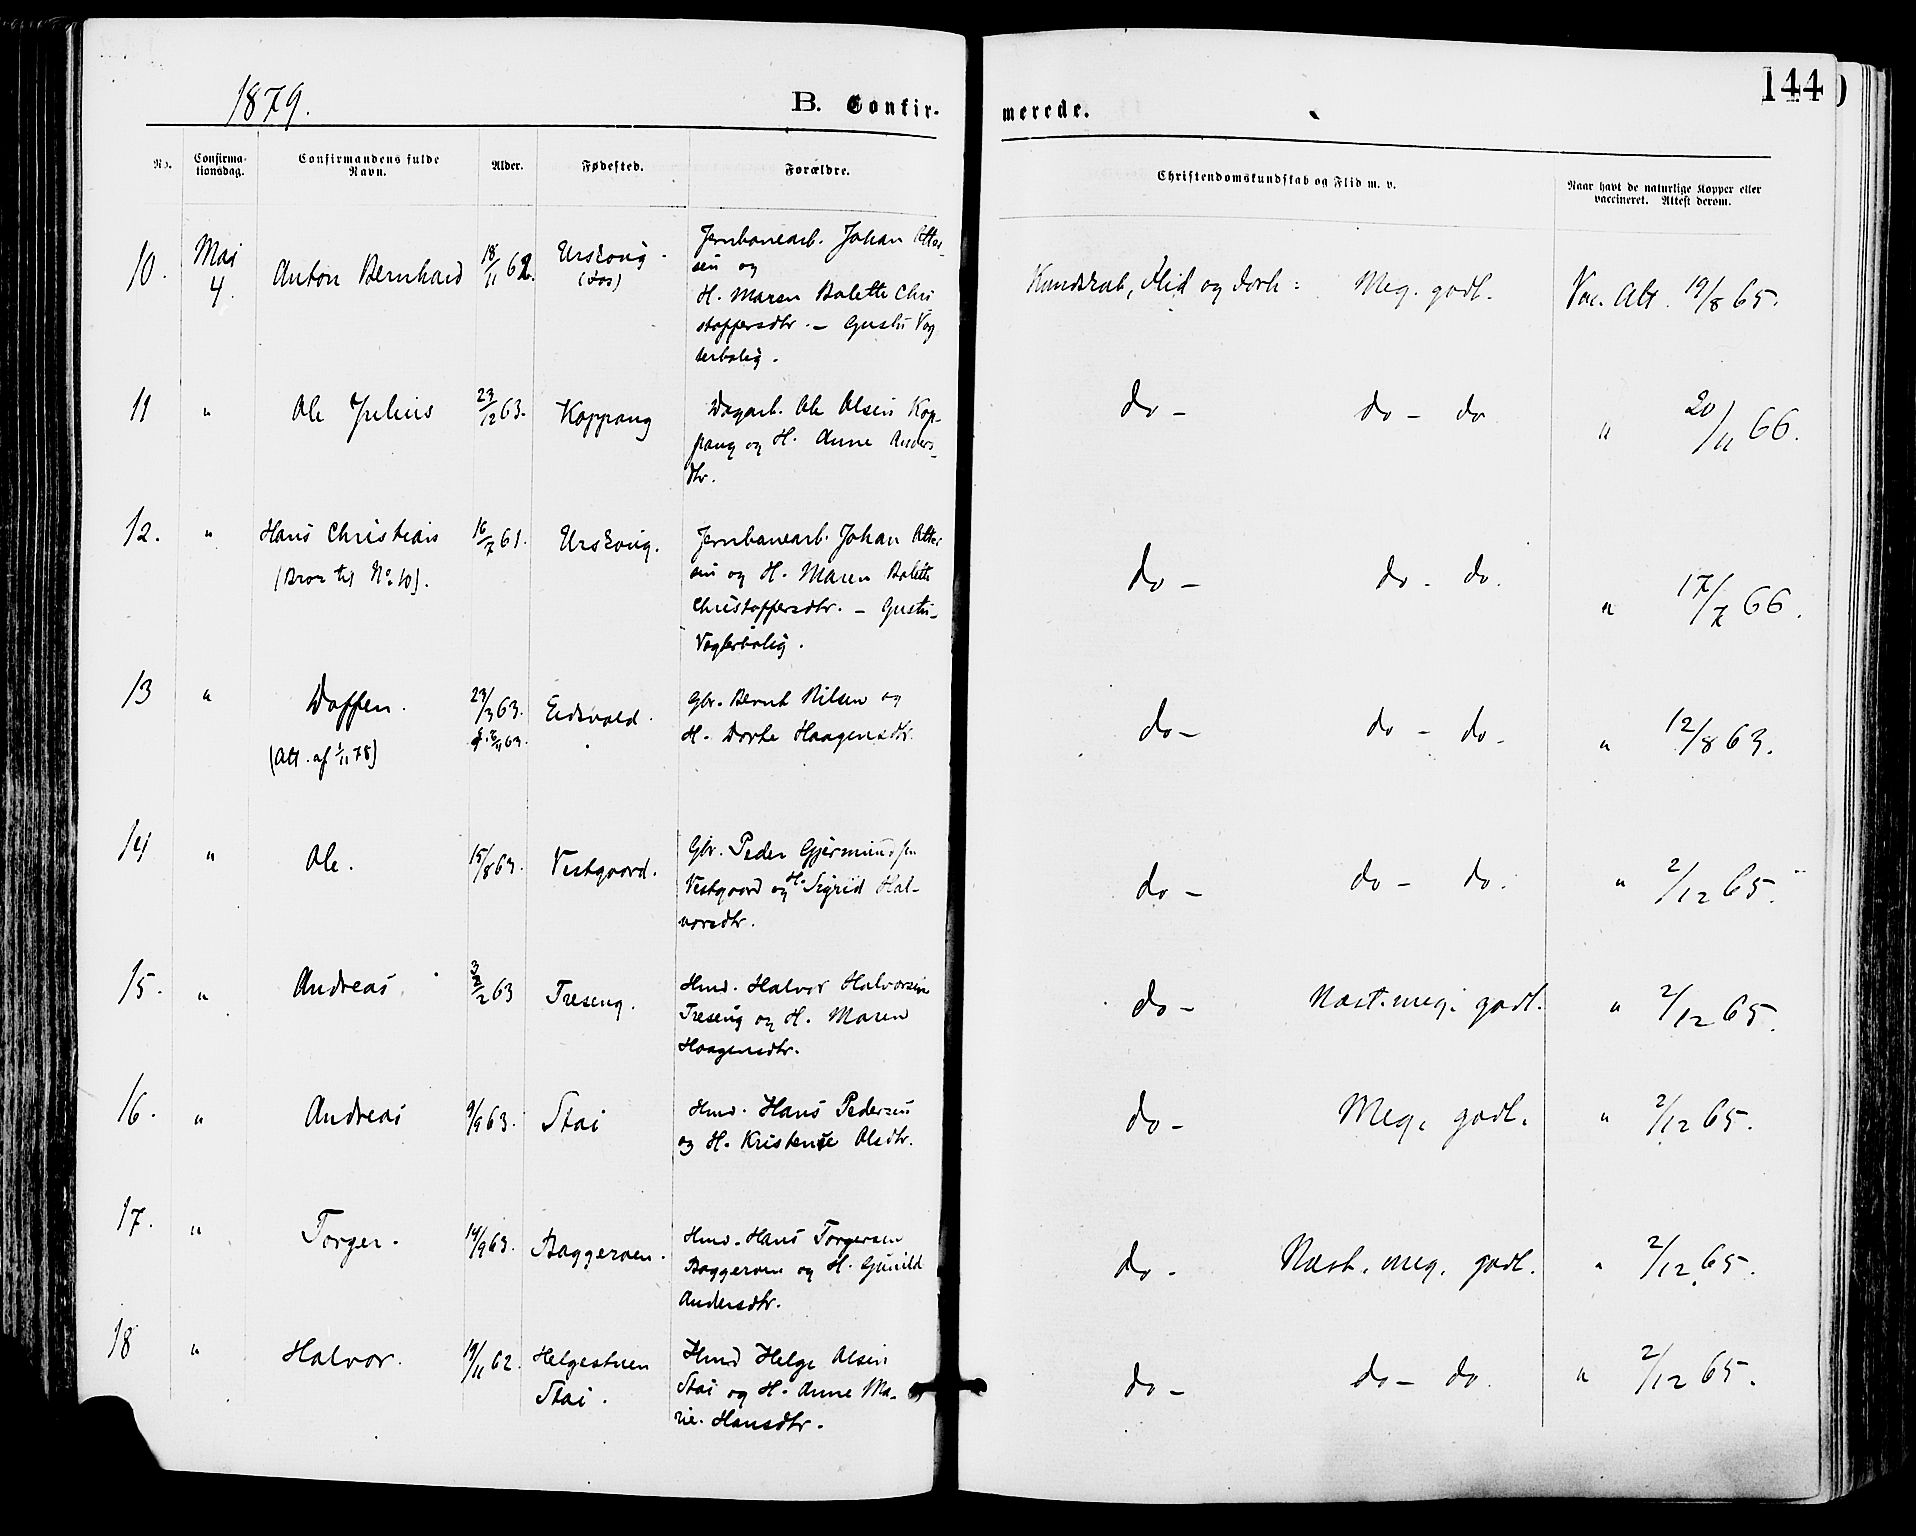 1879.
B. Confir-
merede.
144
No.
Confirma-
tionsdag.
Confirmandens fulde
Navn.
Alder.
Fødested.
Forældre.
Christendomskundskab og Flid m. v.
Naar havt de naturlige Kopper eller
vaccineret. Attest derom.
10.
Mai
4.
Anton Bernhard
18/11 62.
Urskoug.
Jernbanearb. Johan Otter
sen og
H. Maren Bolette Chri
stoffersdtr. –
Kundskab, Flid og Forh: Meg. godt. Vac. Att. 19/8 65.
11 " Ole Julius 23/12 63. Koppang
Dagarb. Ole Olsen Kop-
pang og H. Anne Anders-
dtr.
do – do – do " 20/11 66.
12. " Hans Christian 16/7 61. Urskoug.
(Bror til No. 10).
Jernbanearb. Johan Otter
sen og H. Maren Bolette
Christoffersdtr. –
do – do – do. " 17/7 66.
13 " Doffen. 23/3 63. Eidsvold.
(Att. af 1/11 78)
Gbr. Bernt Nilsen og
H. Dorte Haagensdtr.
do – do – do – " 12/8 63.
14 " Ole. 15/8 63. Vestgaard.
Gbr. Peder Gjermundsen
Vestgaard og H. Sigrid Hal-
vorsdtr.
do – do – do. " 2/12 65.
15. " Andreas 3/2 63 Treseng.
Hmd. Halvor Halvorsen
Treseng og H. Maren
Haagensdtr.
do – Næst. meg. godt. " 2/12 65.
16. " Andreas 9/9 63. Stai
Hmd. Hans Pedersen
og H. Kristense Olsdtr.
do – Meg. godt. " 2/12 65.
17. " Torger. 14/9 63. Baggeroen.
Hmd. Hans Torgersen
Baggeroen og H. Gunild
Andersdtr.
do – Næst. meg. godt. " 2/12 65.
18 " Halvor. 19/11 62. Helgestuen
Stai.
Hmd Helge Olsen
Stai og H. Anne Ma-
rie Hansdtr.
do – do – do. " 2/12 65.